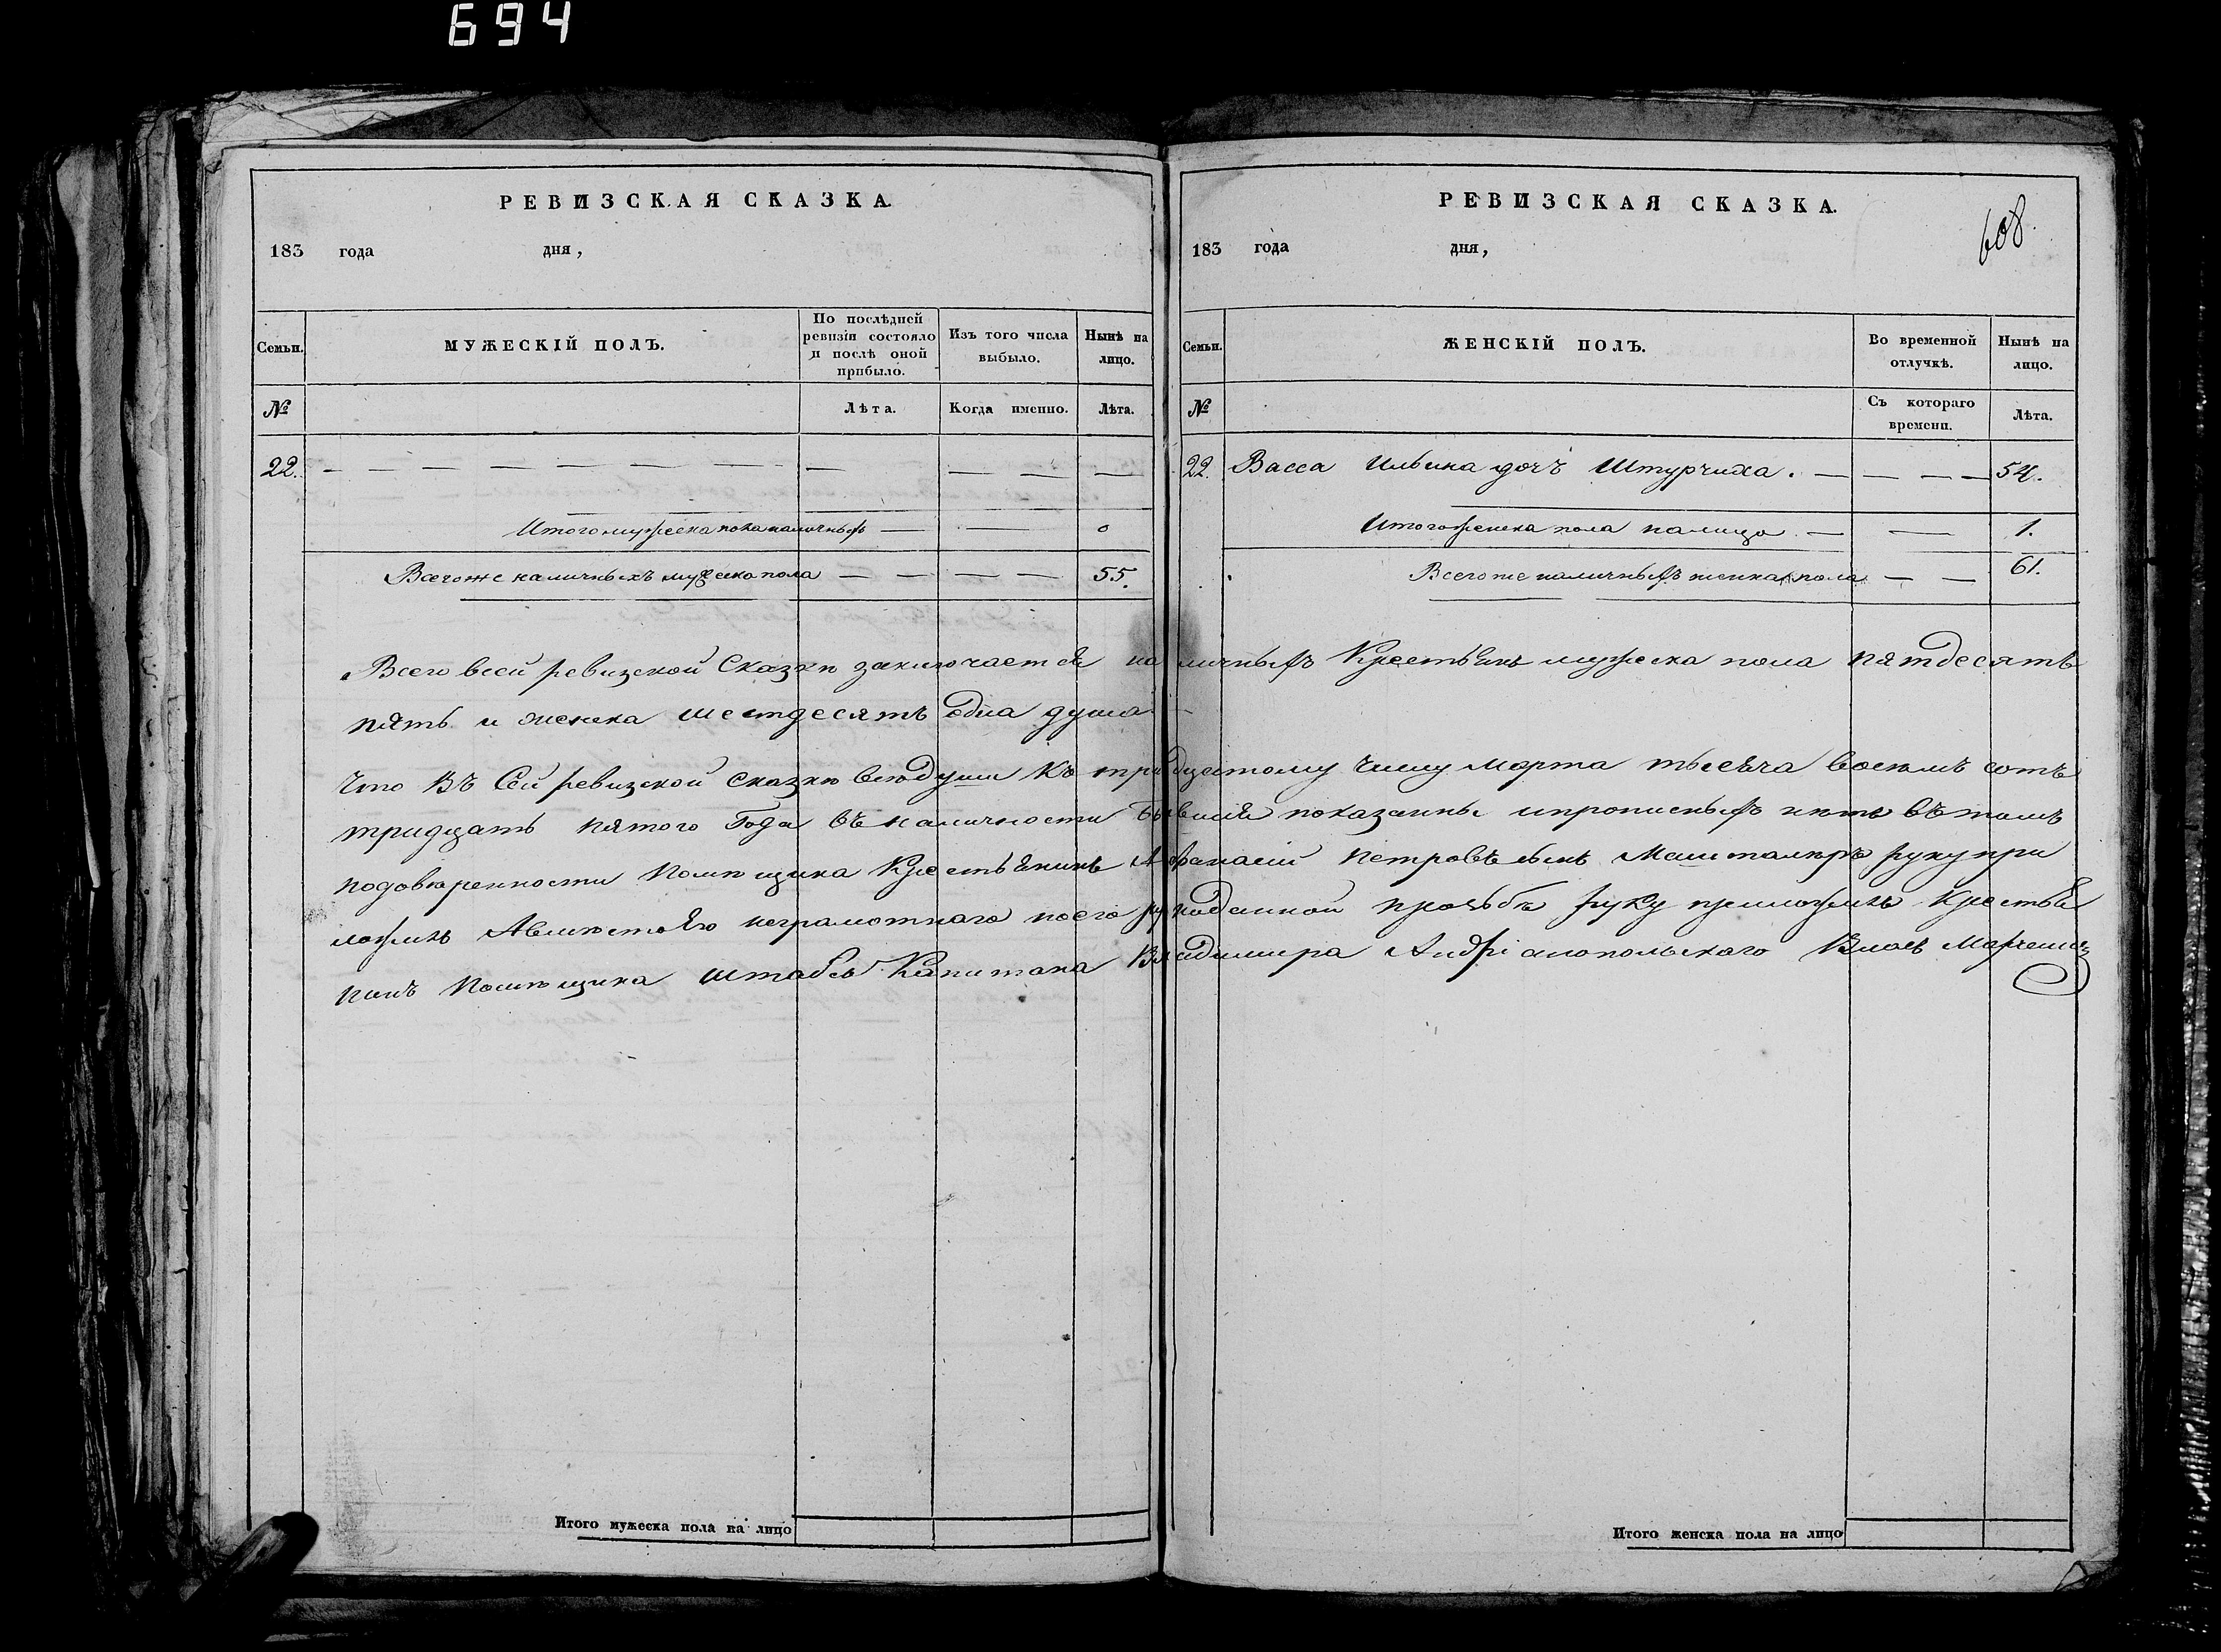 694
РЕВИЗСКАЯ СКАЗКА.
183 года дня,
Семьи.
МУЖЕСКІЙ ПОЛЪ.
По послѣдней ревизіи состояло и послѣ оной прибыло.
Изъ того числа выбыло.
Нынѣ на лицо.
№
Лѣта.
Когда именно.
Лѣта.
22. — — — — — — — — — — — —
Итого мужеска пола наличныхъ — — 0
Всего же наличныхъ мужеска пола — — — — 55.
РЕВИЗСКАЯ СКАЗКА.
608.
183 года дня,
Семьи.
ЖЕНСКІЙ ПОЛЪ.
Во временной отлучкѣ.
Нынѣ на лицо.
№
Съ котораго времени.
Лѣта.
22. Васса Ильина дочъ Штурчиха. — — — — 54.
Итого женска пола налицо — — 1.
Всего же наличныхъ женска пола — — 61.
Всего всей ревизской Сказки заключается наличныхъ Крестьянъ мужеска пола пятдесятъ
пять и женска шестдесятъ одна душа —
Что въ Сей ревизской сказкѣ всѣ души къ тридцатому числу марта тысеча восемъ сотъ
тридцать пятого Года въ наличности бывшія показанны и прописныхъ нѣтъ въ томъ
по довѣренности помѣщика Крестьянинъ Афанасій Петровъ сынъ руку при
ложилъ А вмѣсто Его неграмотнаго по его рукоданной прозьбѣ руку приложилъ Крестья
нинъ Помѣщика штабсъ Капитана Владимира Андріанопольскаго Власъ
Итого мужеска пола на лицо
Итого женска пола на лицо